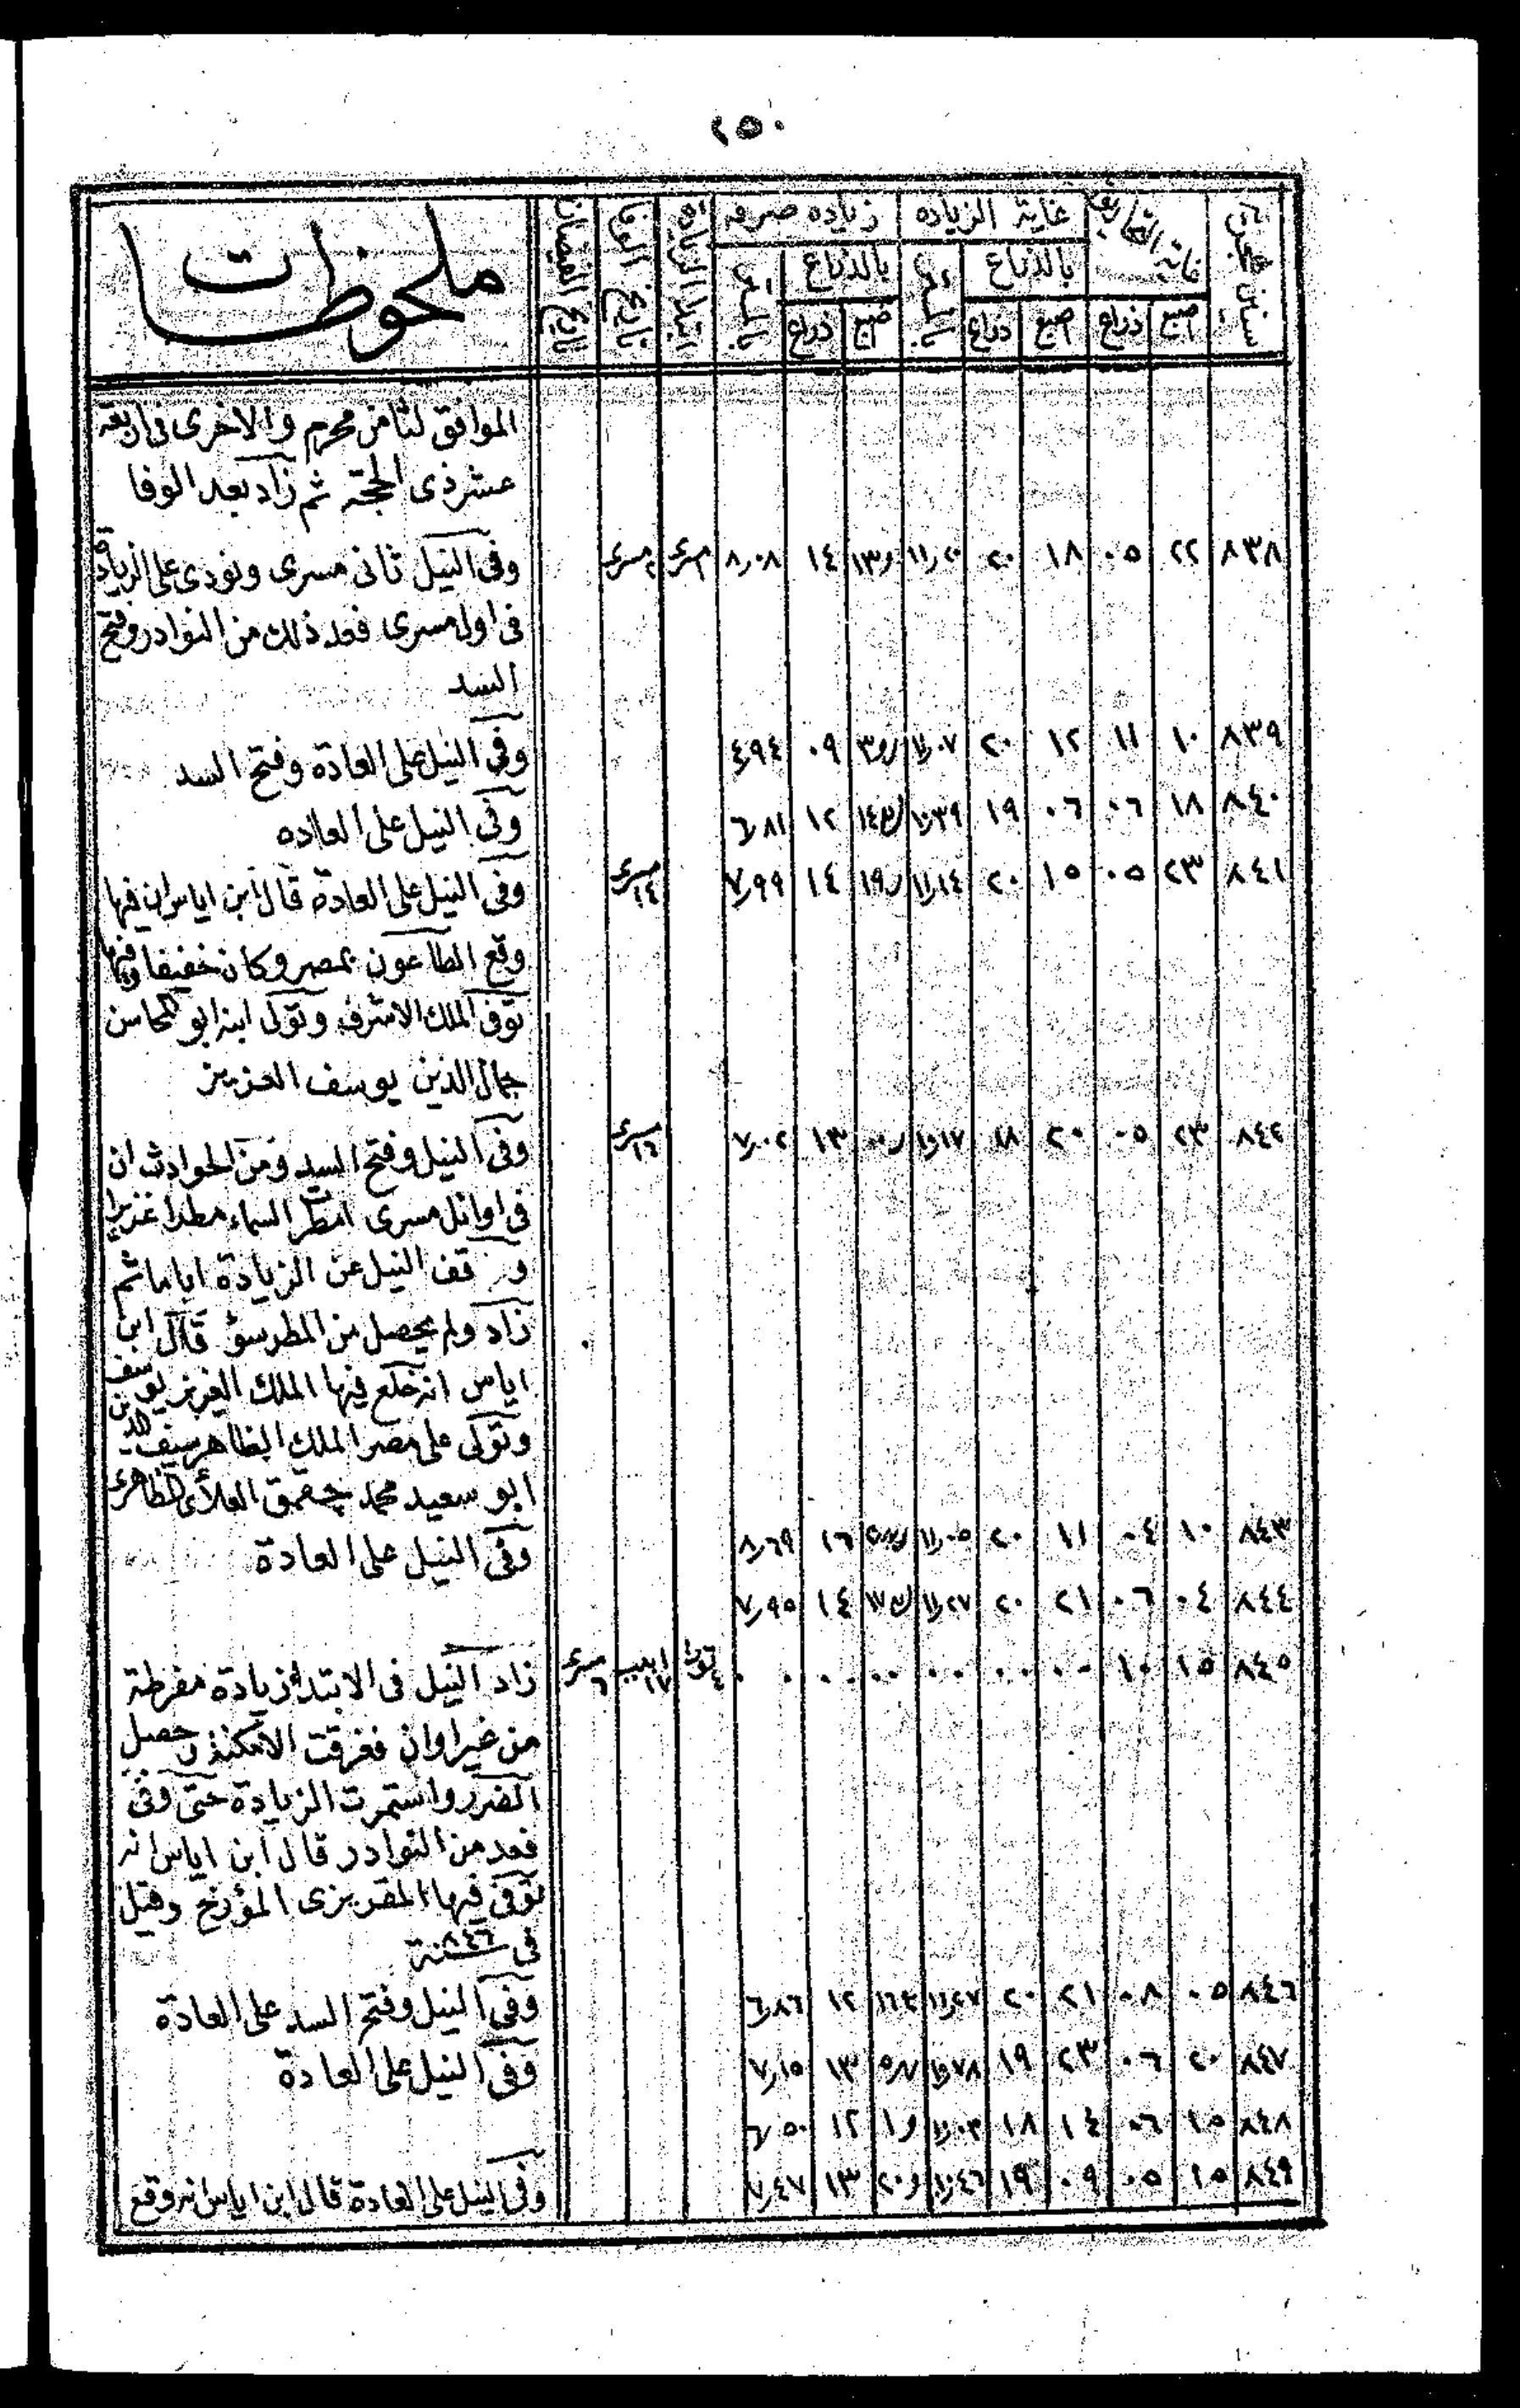 ٢٥٠
سنين هجرية غاية التحاريق غاية الزياده زياده صرفه ابتداء الزيادة تاريخ الوفا تاريخ الفيضان ملحوظات
بالذراع بالمتر بالذراع بالمتر
اصبع ذراع اصبع ذراع اصبع ذراع
الموافق لثامن محرم والاخرى فى اربعة
عشر ذى الحجة ثم زاد بعد الوفا
٨٣٨ ٢٢ ٠٥ ١٨ ٢٠ ١١,٢٠ ١٤ ٨,٠٨ ١ مسرى ٢ مسرى وفى النيل ثانى مسرى ونودى على الزيادة
فى اول مسرى فعد ذلك من النوادر وفتح
السد
٨٣٩ ١٠ ١١ ١٢ ٢٠ ١١,٠٧ ٠٩ ٤,٩٤ وفى النيل على العادة وفتح السد
٨٤٠ ١٨ ٠٦ ٠٦ ١٩ ١٠,٣٩ ١٢ ٦,٨١ وفى النيل على العاده
٨٤١ ٢٣ ٠٥ ١٥ ٢٠ ١١,١٤ ١٤ ٧,٩٩ مسرى ١٤ وفى النيل على العادة قال ابن اياس ان فيها
وقع الطاعون بمصر وكان خفيفا وفيها
توفى الملك الاشرف وتولى ابنه ابو المحاسن
جمال الدين يوسف العزيز
٨٤٢ ٢٣ ٠٥ ٢٠ ١٨ ١٠,١٧ ١٣ ٧,٠٢ مسرى ١٦ وفى النيل وفتح السد ومن الحوادث ان
فى اوائل مسرى امطرت السماء مطرا غزيرا
و قف النيل عن الزيادة اياما ثم
زاد ولم يحصل من المطر سؤ قال ابن
اياس انه خلع فيها الملك العزيز يوسف
وتولى على مصر الملك الظاهر سيف الدين
ابو سعيد محمد چقمق العلائى الظاهرى
٨٤٣ ١٠ ٠٤ ١١ ٢٠ ١١,٠٥ ١٦ ٨,٦٩ وفى النيل على العادة
٨٤٤ ٠٤ ٠٦ ٢١ ٢٠ ١١,٢٧ ١٤ ٧,٩٥
٨٤٥ ١٥ ١٠ ٠٠ ٠٠ ٠٠ ٠٠ ٠٠ ٠ ابيب ١٧ مسرى ٦ زاد النيل فى الابتداء زيادة مفرطة
من غير اوان فغرقت الامكنة وحصل
الضرر واستمرت الزيادة حتى وفى
فعد من النوادر قال ابن اياس انه
توفى فيها المقريزى المؤرخ وقيل
فى سنة ٨٤٦
٨٤٦ ٠٥ ٠٨ ٢١ ٢٠ ١١,٢٧ ١٢ ٦,٨٦ وفى النيل وفتح السد على العادة
٨٤٧ ٢٠ ٠٦ ٢٣ ١٩ ١٠,٧٨ ١٣ ٧,١٥ وفى النيل على العادة
٨٤٨ ١٥ ٠٦ ١٤ ١٨ ١٢ ٦,٥٠
٨٤٩ ١٥ ٠٥ ٠٩ ١٩ ١٠,٤٦ ١٣ ٧,٤٧ وفى النيل على العادة قال ابن اياس انه وقع